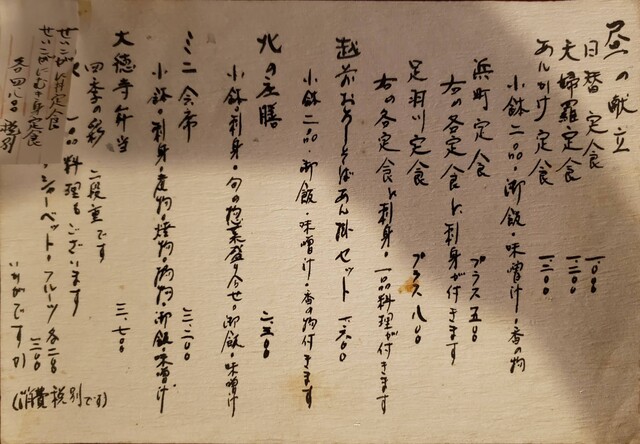 昼の献立
日替定食 一、一〇〇
天婦羅定食 一、三〇〇
あんかけ定食 一、二〇〇
小鉢二品・御飯・味噌汁・香の物
浜町定食 プラス五〇〇
右の各定食に刺身が付きます
足羽川定食 プラス八〇〇
右の各定食に刺身・一品料理が付きます
越前おろしそばあん掛セット 一、六〇〇
小鉢二品・御飯・味噌汁・香の物付きます
北の庄膳 二、五〇〇
小鉢・刺身・旬の惣菜盛り合せ・御飯・味噌汁
ミニ会席 三、二〇〇
小鉢・刺身・煮物・焼物・御飯・味噌汁
大徳寺弁当 三、七〇〇
四季の彩 二段重です
一品料理もございます
シャーベット・フルーツ 各二〇〇
いかがですか
(消費税別です)
せいこがに丼定食
せいこがにむき身定食
税別